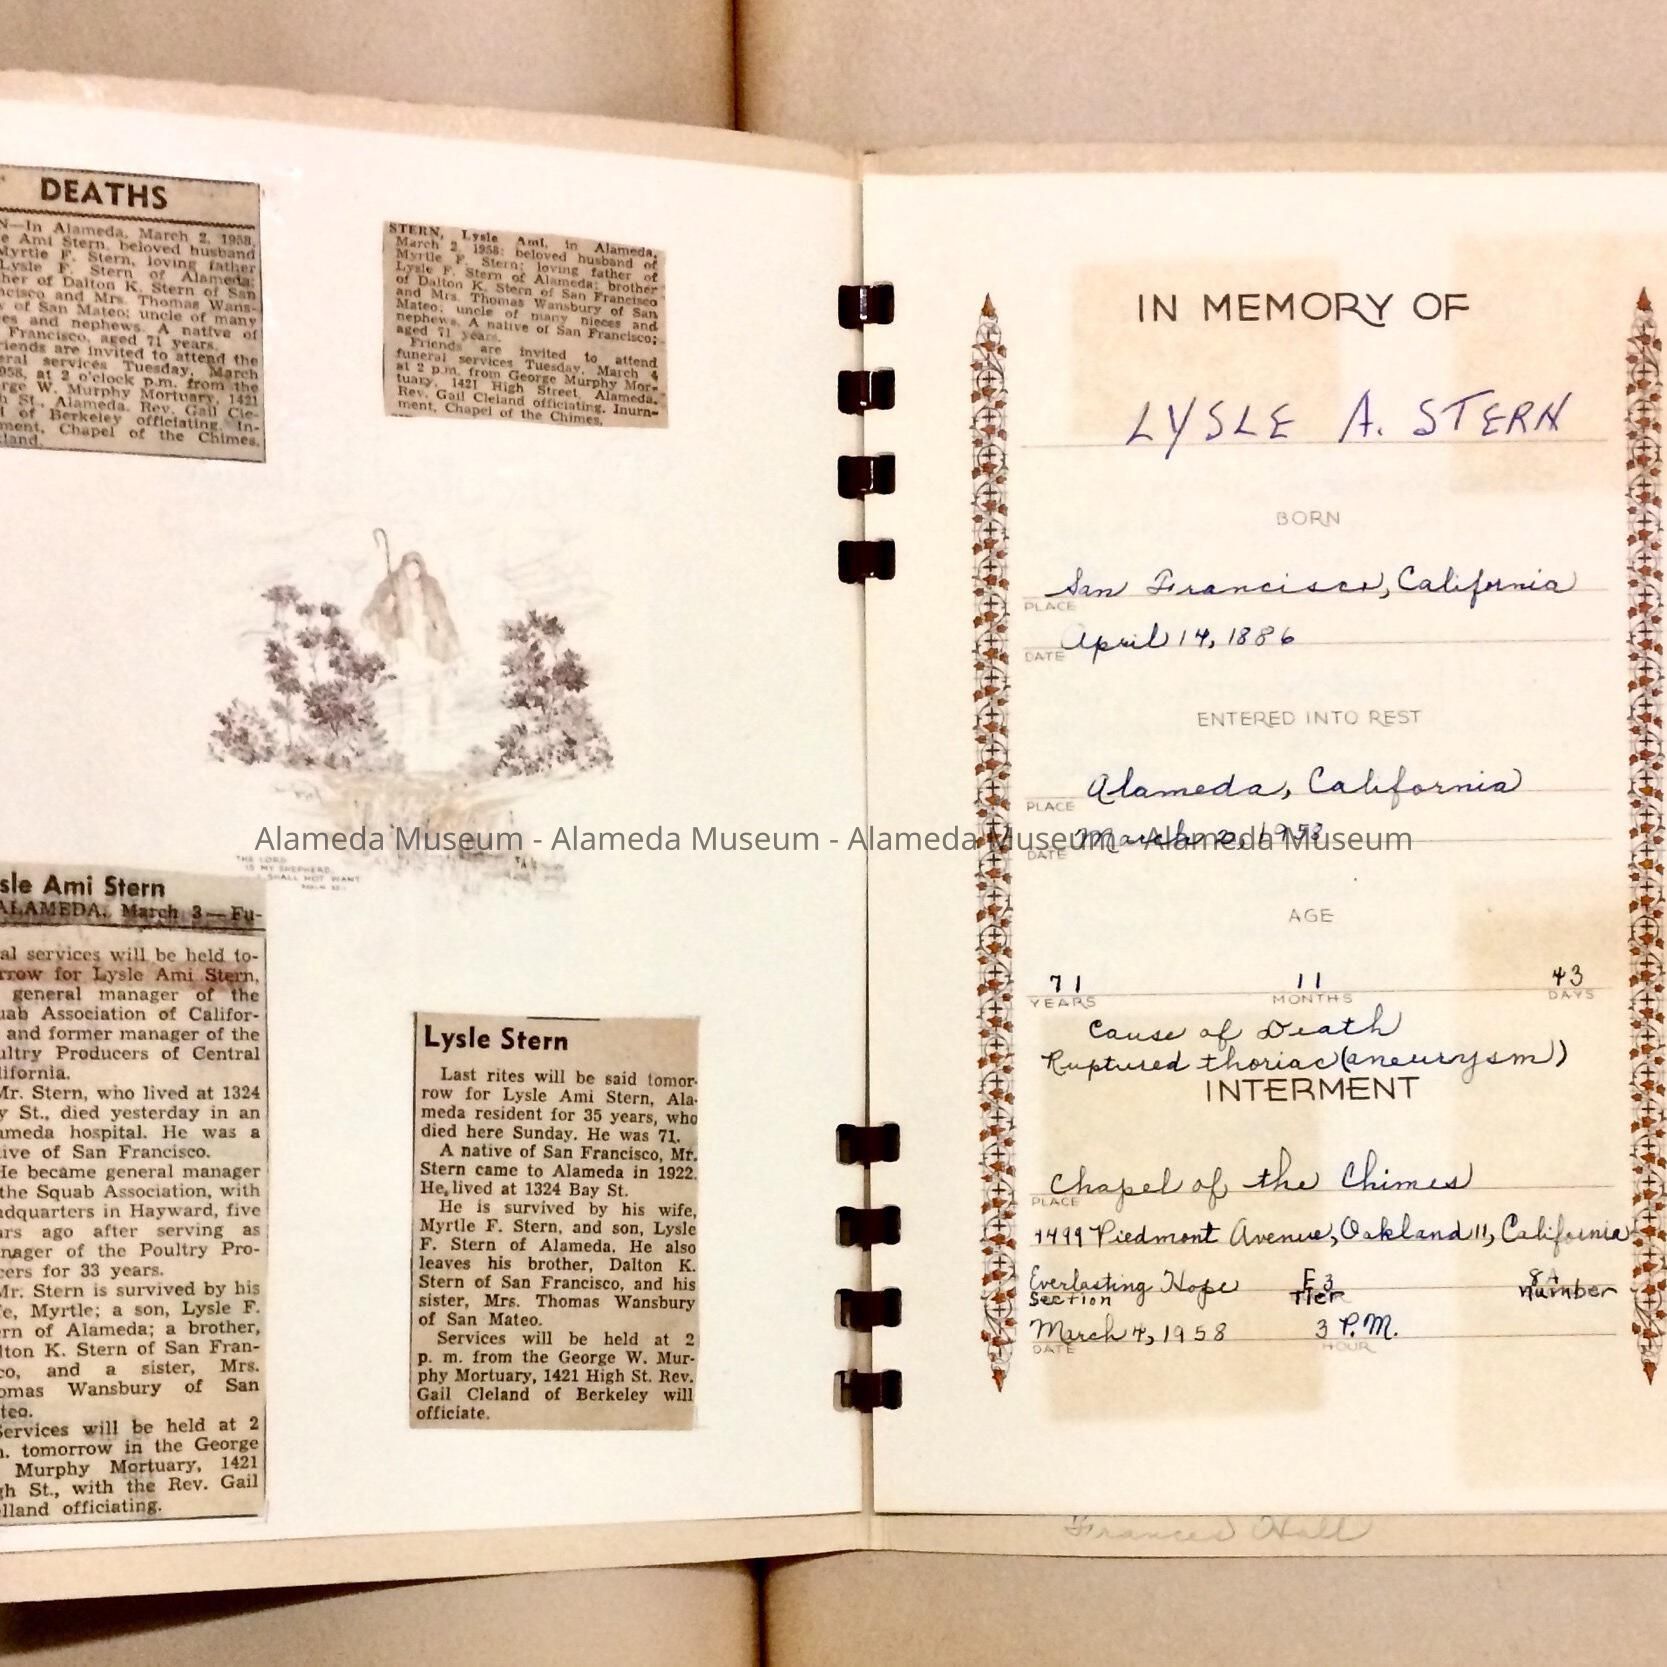 DEATHS
N—In Alameda, March 2, 1958,
e Ami Stern, beloved husband
Myrtle F. Stern, loving father
Lysle F. Stern of Alameda;
her of Dalton K. Stern of San
ncisco and Mrs. Thomas Wans-
y of San Mateo; uncle of many
es and nephews. A native of
Francisco, aged 71 years.
riends are invited to attend the
eral services Tuesday, March
958, at 2 o'clock p.m. from the
rge W. Murphy Mortuary, 1421
h St., Alameda. Rev. Gail Cle-
d of Berkeley officiating. In-
ment, Chapel of the Chimes,
land.
STERN, Lysle Ami, in Alameda,
March 2, 1958; beloved husband of
Myrtle F. Stern; loving father of
Lysle F. Stern of Alameda; brother
of Dalton K. Stern of San Francisco
and Mrs. Thomas Wansbury of San
Mateo; uncle of many nieces and
nephews. A native of San Francisco;
aged 71 years.
Friends are invited to attend
funeral services Tuesday, March 4
at 2 p.m. from George Murphy Mor-
tuary, 1421 High Street, Alameda.
Rev. Gail Cleland officiating. Inurn-
ment, Chapel of the Chimes.
THE LORD
IS MY SHEPHERD,
I SHALL NOT WANT
sle Ami Stern
ALAMEDA, March 3—Fu-
al services will be held to-
rrow for Lysle Ami Stern,
general manager of the
uab Association of Califor-
and former manager of the
ultry Producers of Central
lifornia.
Mr. Stern, who lived at 1324
y St., died yesterday in an
ameda hospital. He was a
ive of San Francisco.
He became general manager
the Squab Association, with
adquarters in Hayward, five
ars ago after serving as
nager of the Poultry Pro-
cers for 33 years.
Mr. Stern is survived by his
e, Myrtle; a son, Lysle F.
ern of Alameda; a brother,
lton K. Stern of San Fran-
co, and a sister, Mrs.
omas Wansbury of San
teo.
Services will be held at 2
m. tomorrow in the George
Murphy Mortuary, 1421
gh St., with the Rev. Gail
elland officiating.
Lysle Stern
Last rites will be said tomor-
row for Lysle Ami Stern, Ala-
meda resident for 35 years, who
died here Sunday. He was 71.
A native of San Francisco, Mr.
Stern came to Alameda in 1922.
He lived at 1324 Bay St.
He is survived by his wife,
Myrtle F. Stern, and son, Lysle
F. Stern of Alameda. He also
leaves his brother, Dalton K.
Stern of San Francisco, and his
sister, Mrs. Thomas Wansbury
of San Mateo.
Services will be held at 2
p. m. from the George W. Mur-
phy Mortuary, 1421 High St. Rev.
Gail Cleland of Berkeley will
officiate.
IN MEMORY OF
LYSLE A. STERN
BORN
San Francisco, California
PLACE
April 14, 1886
DATE
ENTERED INTO REST
Alameda, California
PLACE
March 2, 1958
DATE
Alameda Museum - Alameda Museum - Alameda Museum - Alameda Museum
AGE
71 11 43
YEARS MONTHS DAYS
Cause of Death
Ruptured thoriac (aneurysm)
INTERMENT
Chapel of the Chimes
PLACE
4499 Piedmont Avenue, Oakland 11, California
Everlasting Hope E3 8A
Section Tier number
March 4, 1958 3 P.M.
DATE HOUR
Frances Hall